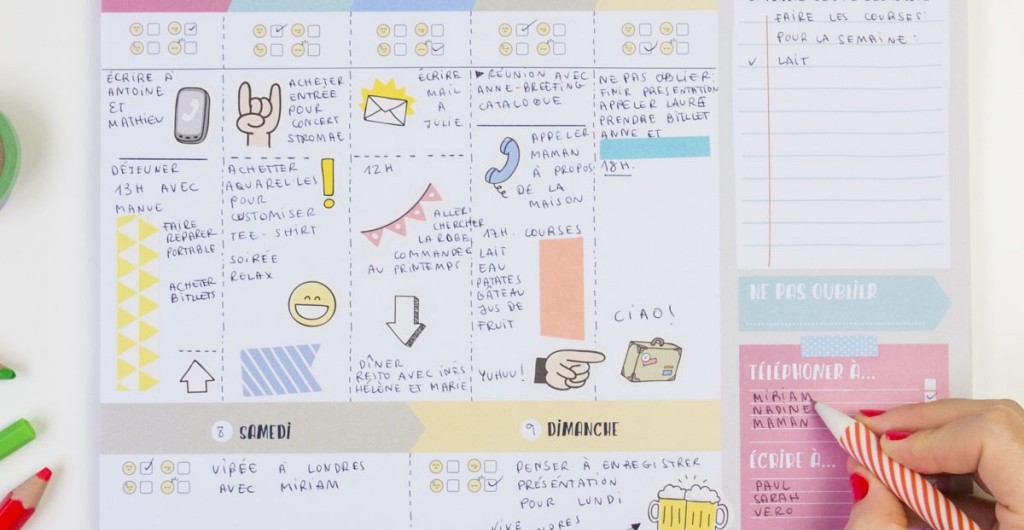 ÉCRIRE À
ANTOINE
ET
MATHIEU
DÉJEUNER
13H AVEC
MANUE
FAIRE
REPARER
PORTABLE
ACHETER
BILLETS
ACHETER
ENTRÉE
POUR
CONCERT
STROMAE
ACHETTER
AQUARELLES
POUR
CUSTOMISER
TEE-SHIRT
SOIRÉE
RELAX
ÉCRIRE
MAIL
À
JULIE
12H
ALLER
CHERCHER
LA ROBE
COMMANDEE
AU PRINTEMPS
DÎNER
RESTO AVEC INÉS
HÉLÈNE ET MARIE
▶ RÉUNION AVEC
ANNE-BREEFING
CATALOGUE
APPELER
MAMAN
À PROPOS
DE LA
MAISON
17H. COURSES
LAIT
EAU
PATATES
GÂTEAU
JUS DE
FRUIT
YUHUU!
NE PAS OUBLIER:
FINIR PRESENTATION
APPELER LAURE
PRENDRE BILLET
ANNE ET
18H.
CIAO!
8 SAMEDI
VIRÉE À LONDRES
AVEC MIRIAM
9 DIMANCHE
PENSER À ENREGISTRER
PRÉSENTATION
POUR LUNDI
VIVE
FAIRE LES COURSES:
POUR LA SEMAINE:
✓ LAIT
NE PAS OUBLIER
TÉLÉPHONER À...
MIRIAM
NADINE
MAMAN
ÉCRIRE À...
PAUL
SARAH
VERO